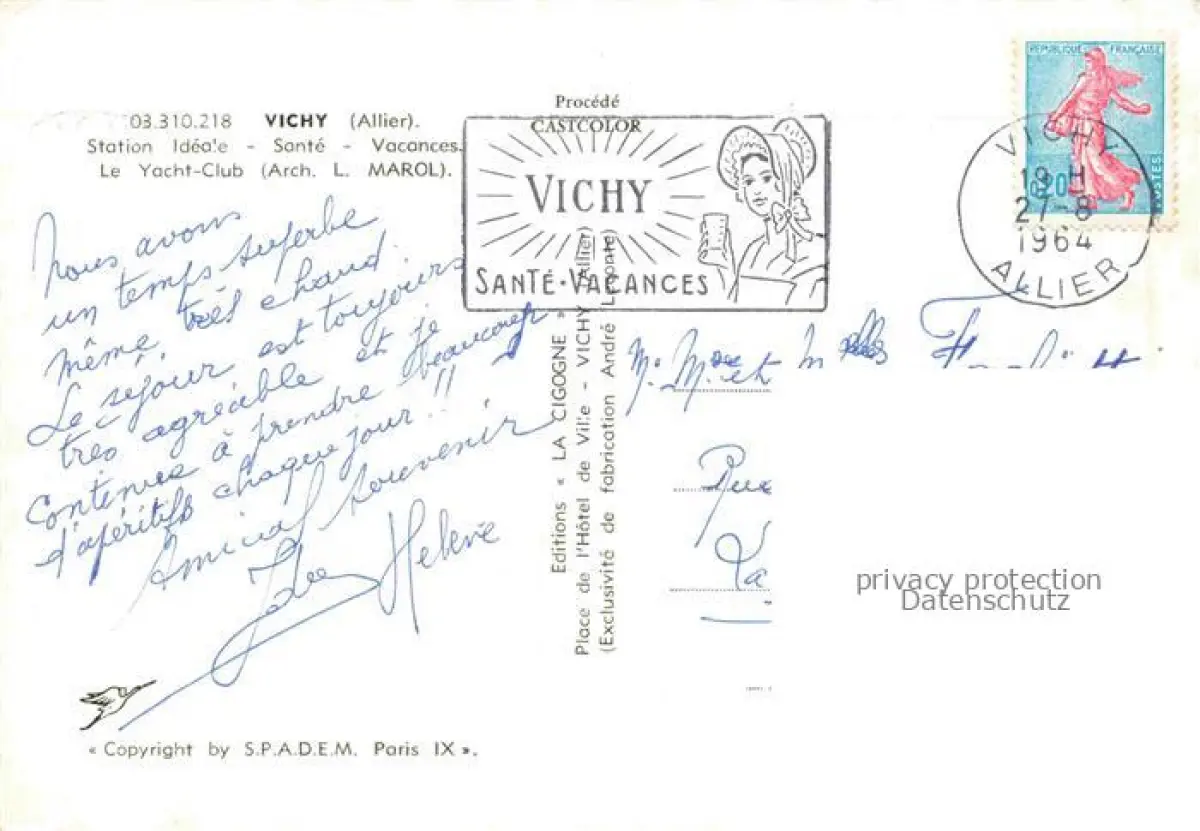 03.310.218 VICHY (Allier).
Station Idéale - Santé - Vacances.
Le Yacht-Club (Arch. L. MAROL).
Nous avons
un temps superbe
même très chaud.
Le séjour est toujours
très agréable et je
continue à prendre beaucoup
d'apéritifs chaque jour !!
Amical souvenir
Helene
« Copyright by S.P.A.D.E.M. Paris IX ».
Procédé
CASTCOLOR
VICHY
SANTÉ • VACANCES
Editions « LA CIGOGNE »
Place de l'Hôtel de Ville - VICHY (Allier)
(Exclusivité de fabrication André Leconte)
REPUBLIQUE FRANÇAISE
0,20
POSTES
VICHY
19 H
27-8
1964
ALLIER
privacy protection
Datenschutz